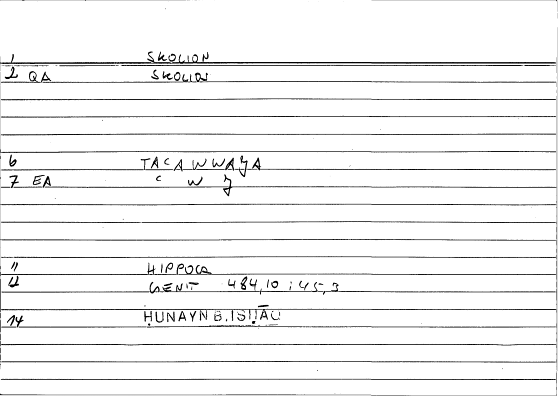 1 SKOLION
2 QA SKOLION
6 TAcAWWAJA
7 EA c W J
11 HIPPOCR
12 GENIT 484,10 ; 45,3
14 ḤUNAYN B. ISḤĀQ